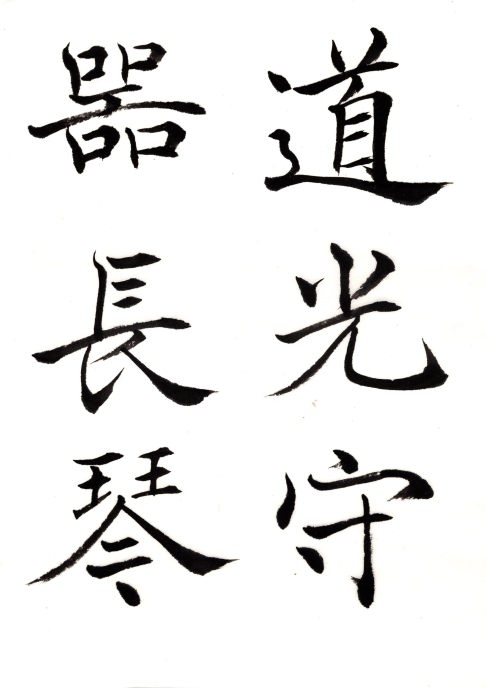 道光守
器長琴